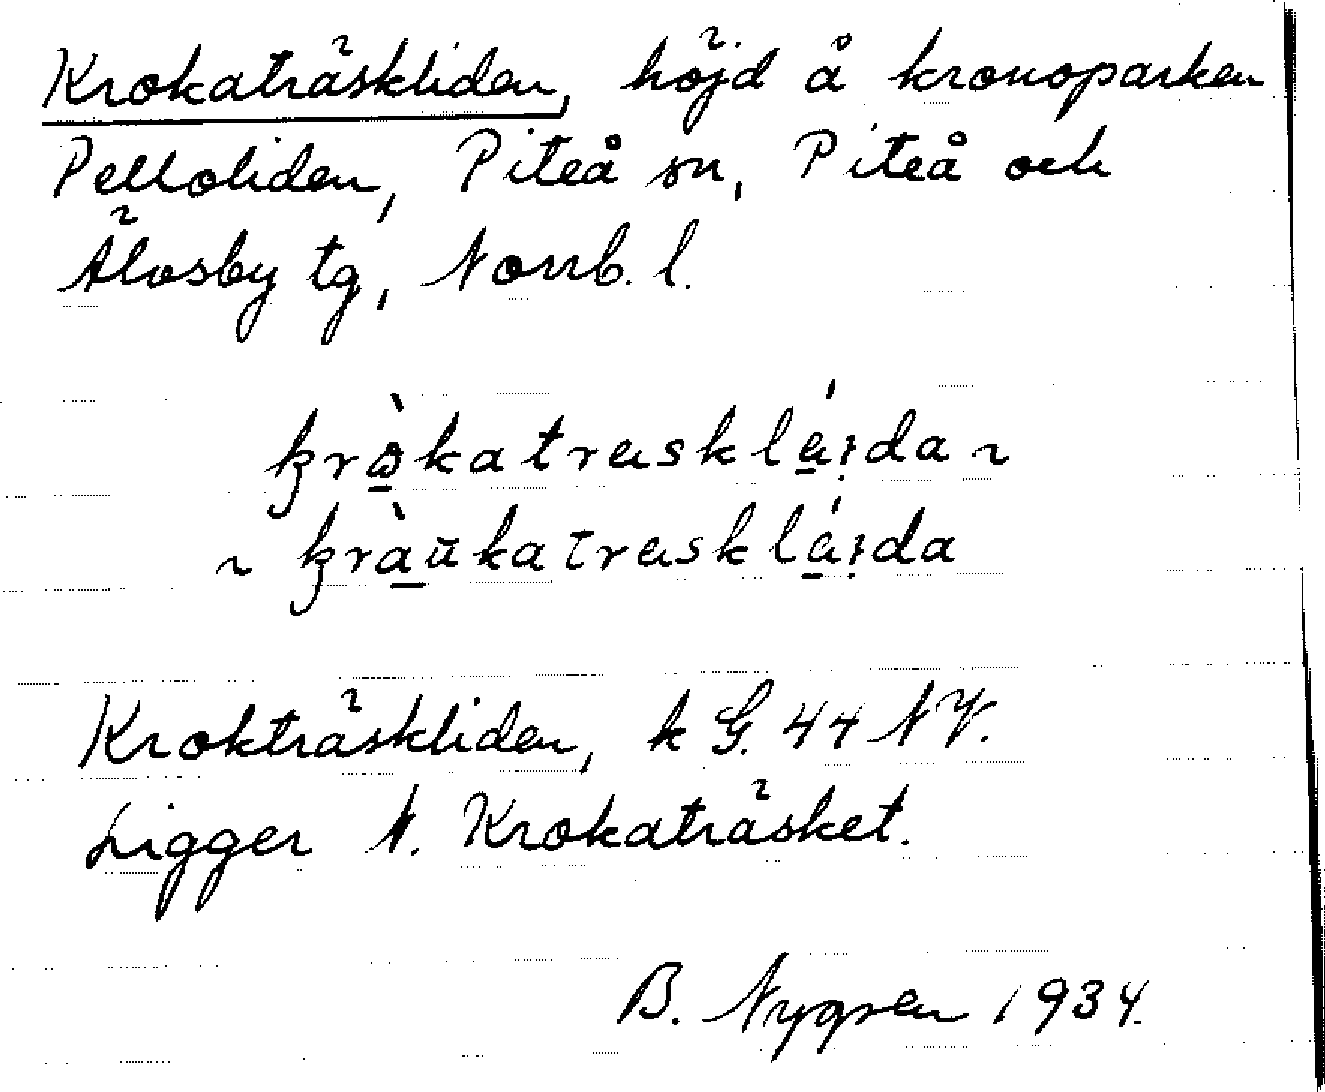 Krokaträskliden, höjd å kronoparken
Pelloliden, Piteå sn, Piteå och
Älvsby tg, Norrb. l.
krò̱katrasklá̱i̯da ~
~ krà̱ŭkatrasklá̱i̯da
Krokträskliden, k G. 44 NV.
Ligger N. Krokaträsket.
B. Nygren 1934.